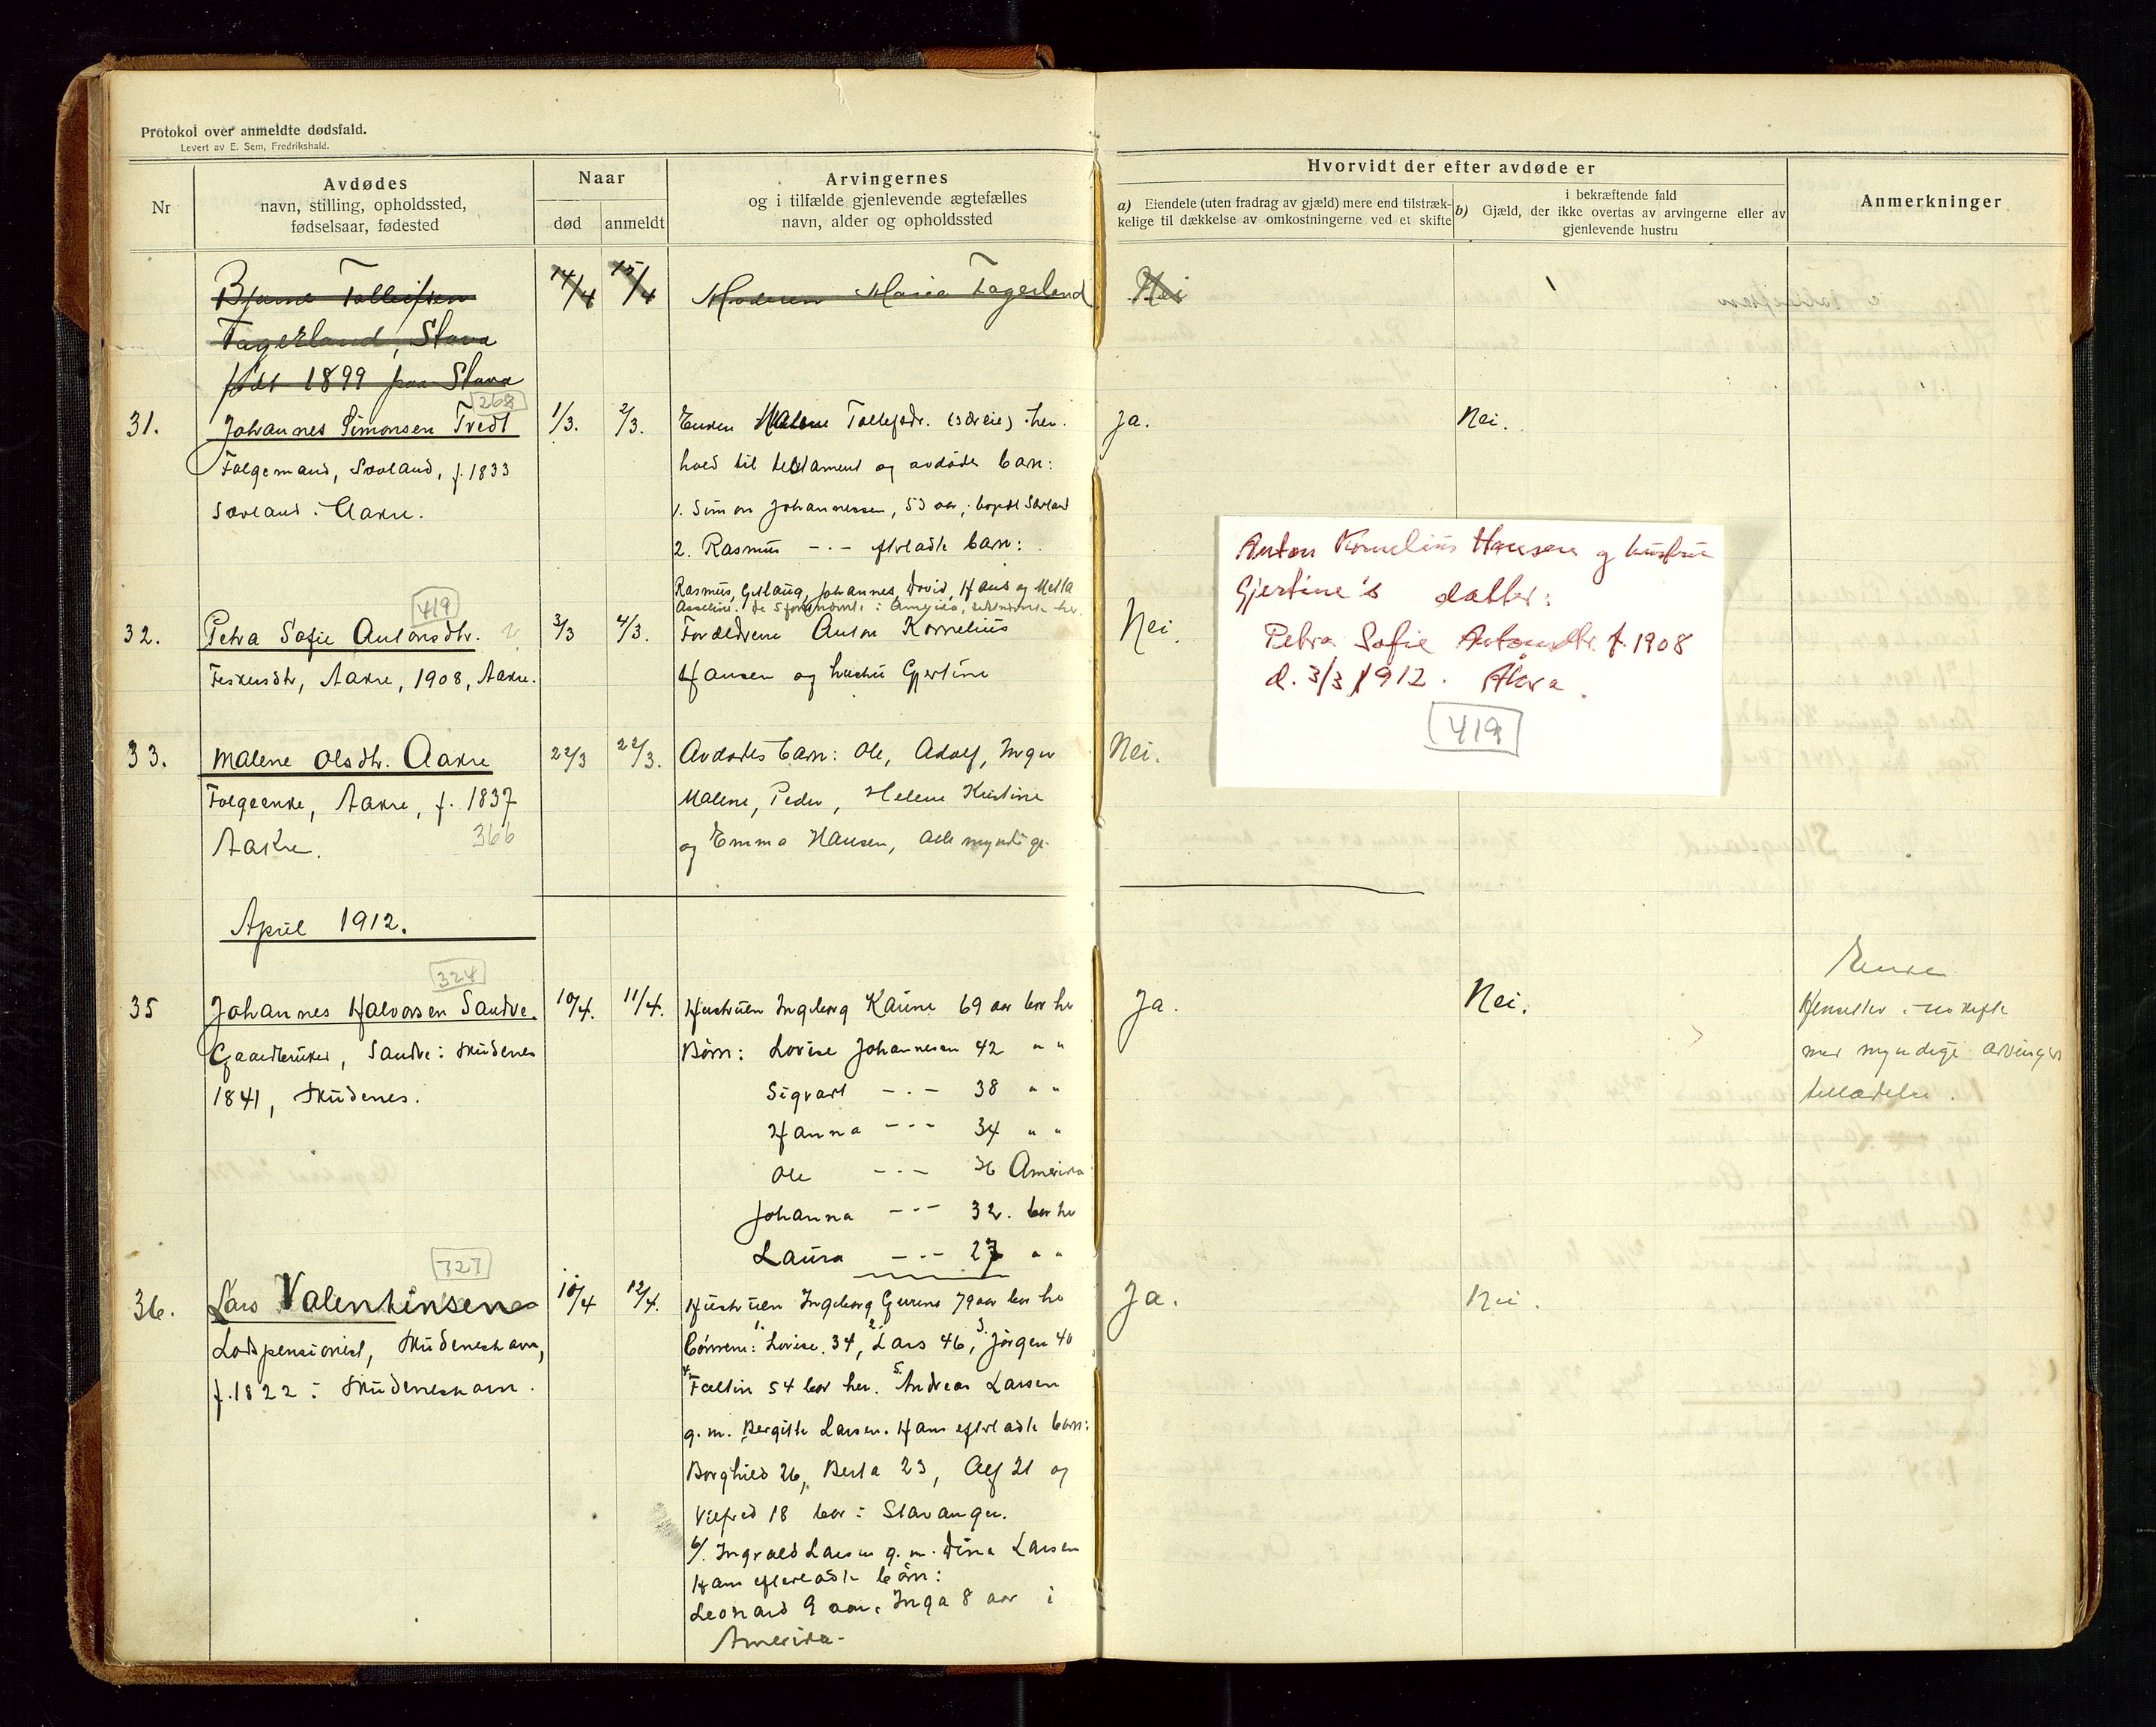 Protokol over anmeldte dødsfald.
Levert av E. Sem, Fredrikshald.
Nr
Avdødes
navn, stilling, opholdssted,
fødselsaar, fødested
Naar
død
anmeldt
Arvingernes
og i tilfælde gjenlevende ægtefælles
navn, alder og opholdssted
Hvorvidt der efter avdøde er
a) Eiendele (uten fradrag av gjæld) mere end tilstræk-
kelige til dækkelse av omkostningerne ved et skifte
i bekræftende fald
b) Gjæld, der ikke overtas av arvingerne eller av
gjenlevende hustru
Anmerkninger
Bjarne Tolleifsen
Fagerland, Stava
født 1899 paa Stava
14/4
15/4
Moderen Marie Fagerland
Nei
31.
268
Johannes Simonsen Tvedt
Folgemand, Sævland, f. 1833
Sævland i Aakre.
1/3.
2/3.
Enken Malene Tollefsdr. (særeie) hen.
hold til testament og avdødes barn:
1. Simon Johannessen, 53 aar, bopæl Sævland
2. Rasmus -"- efterladte barn:
Rasmus, Gitlaug, Johannes, David, Hans og Metta
Asseline. De 5 førstnævnte i Amerika, sidstnævnte her.
Ja.
Nei.
32.
419
Petra Sofie Antonsdtr.
Fiskersdtr, Aakre, 1908, Aakre.
3/3
4/3.
Forældrene Anton Kornelius
Hansen og hustru Gjertine
Nei.
Anton Kornelius Hansen og hustru
Gjertine's datter:
Petra Sofie Antonsdtr. f. 1908
d. 3/3 1912. Åkra.
419
33.
Malene Olsdtr. Aakre
Folgeenke, Aakre, f. 1837
Aakre.
366
22/3
22/3.
Avdødes barn: Ole, Adolf, Inger
Malene, Peder, Helene Kristine
og Emma Hansen, alle myndige
Nei.
April 1912.
35
324
Johannes Halvorsen Sandve.
Gaardbruker, Sandve i Skudenes
1841, Skudenes.
10/4.
11/4.
Hustruen Ingeborg Karine 69 aar bor her
Børn: Lovise Johannesen 42 " "
Sigvart -"- 38 " "
Hanna -"- 34 " "
Ole -"- 36 Amerika
Johanna -"- 32. bor her
Laura -"- 27 " "
Ja.
Nei.
Enken
Hensitter i uskifte
med myndige arvingers
tilladelse.
36.
327
Lars Valentinsen
Lodspensionist, Skudeneshavn,
f. 1822 i Skudeneshavn.
10/4
12/4.
Hustruen Ingeborg Gurine 79 aar bor her
Børnene: 1. Lovise 34, 2. Lars 46, 3. Jørgen 40
4. Faltin 54 bor her. 5. Andreas Larsen
g. m. Bergitte Larsen. Hans efterladte barn:
Borghild 26, Berta 23, Alf 21 og
Vilfred 18 bor i Stavanger.
6/. Ingvald Larsen g. m. Dina Larsen
Hans efterladte børn:
Leonard 9 aar, Inga 8 aar i
Amerika.
Ja.
Nei.